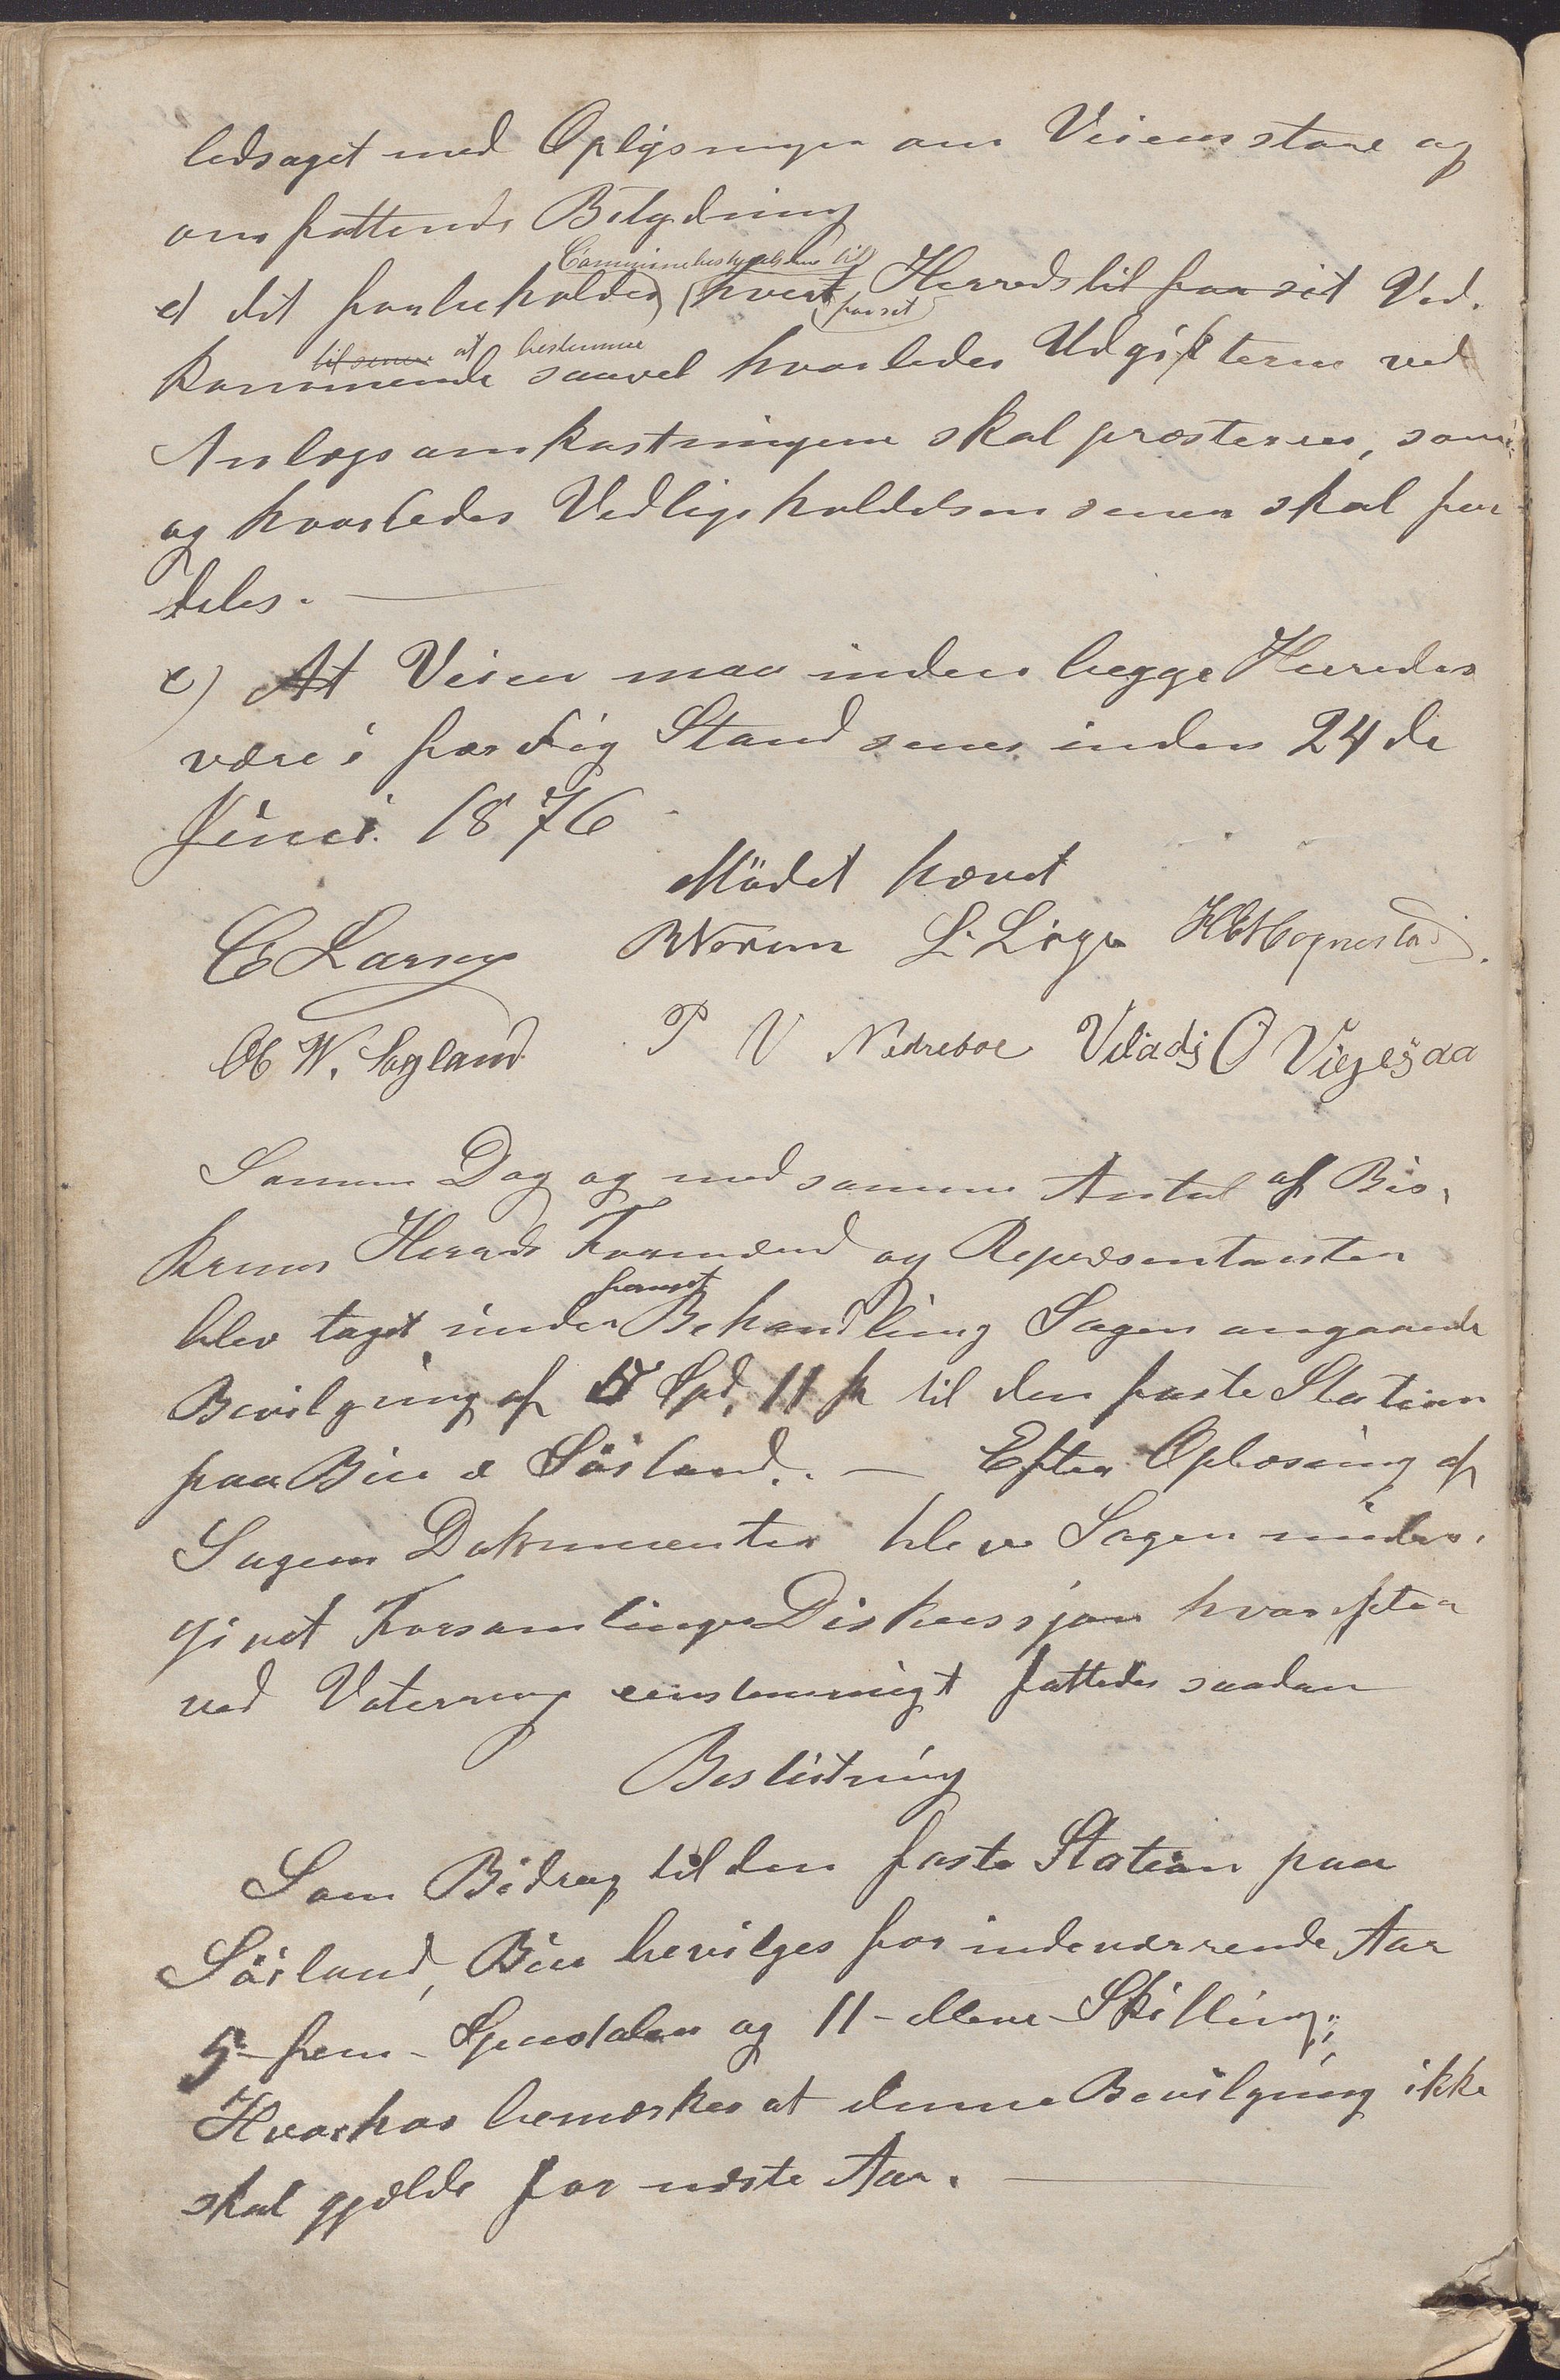 ledsaget med Oplysninger om Veiens store og
omfattende Betydning
Communebestyrelsen til
d) det forbeholdes hvert Herred til for sit Ved-
for sit
til senere at bestemme
kommende saavel hvorledes Udgifterne ved
Anlægsomkostningerne skal præsteres, som
og hvorledes Vedligeholdelsen senere skal for-
deles.
e) At Veien maa inden begge Herreder
være i færdig Stand senes inden 24de
Juni 1876
Mödet hævet
C Larsen B Norum L. Lige H E Hognestad
O W. Sagland P V Nedreboe Viladj O Vigesaa
Samme Dag og med samme Antal af Bir-
kremes Herreds Formænd og Repræsentanter
fornyet
blev taget under Behandling Sagen angaaende
Bevilgning af 5 Spd. 11 s til den faste Station
paa Bue & Sörland. — Efter Oplæsning af
Sagens Dokumenter blev Sagen under-
givet Forsamlingens Diskussjon hvorefter
ved Votering eenstemmigt fattedes saadan
Beslutning
Som Bidrag til den faste Station paa
Sörland, Bue bevilges for indeværrende Aar
5-fem-Speciedaler og 11-elleve-Skilling;
Hvorhos bemærkes at denne Bevilgning ikke
skal gjælde for næste Aar.